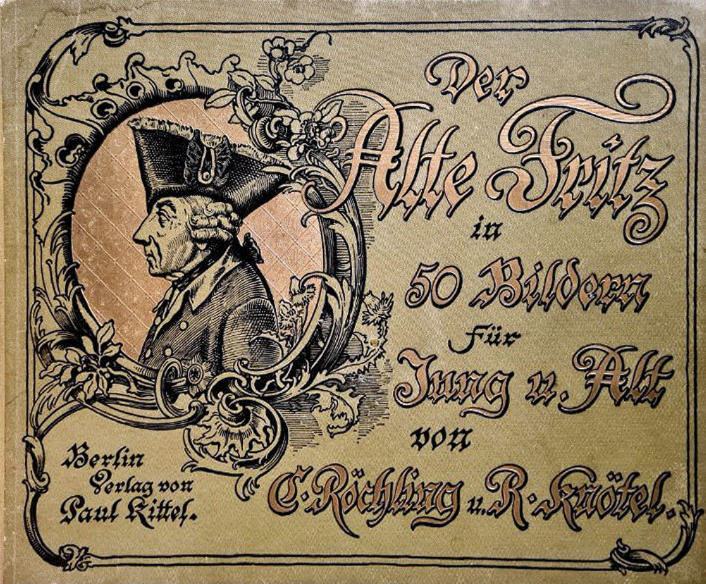 Der
Alte Fritz
in
50 Bildern
für
Jung u. Alt
von
C. Röchling u. R. Knötel.
Berlin
Verlag von
Paul Kittel.